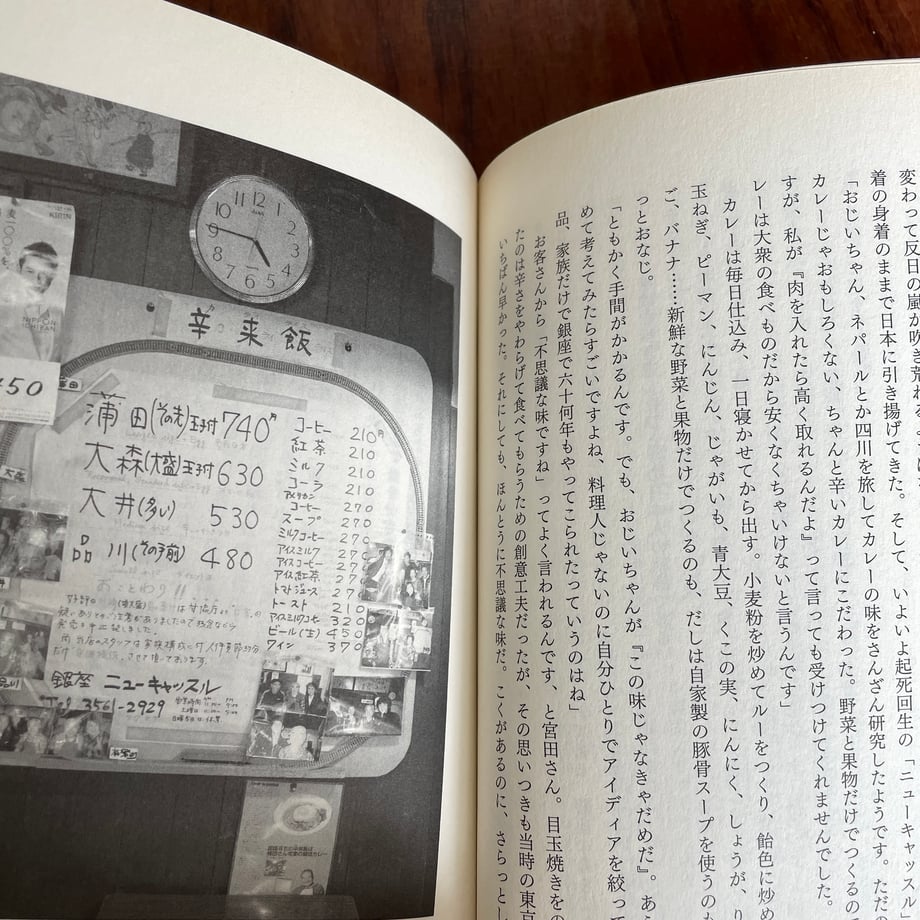 変わって反日の嵐が吹き荒れ
着の身着のままで日本に引き揚げてきた。そして、いよいよ起死回生の「ニューキャッスル」
「おじいちゃん、ネパールとか四川を旅してカレーの味をさんざん研究したようです。ただの
カレーじゃおもしろくない、ちゃんと辛いカレーにこだわった。野菜と果物だけでつくるの
すが、私が『肉を入れたら高く取れるんだよ』って言っても受けつけてくれませんでした。
レーは大衆の食べものだから安くなくちゃいけないと言うんです」
カレーは毎日仕込み、一日寝かせてから出す。小麦粉を炒めてルーをつくり、飴色に炒め
玉ねぎ、ピーマン、にんじん、じゃがいも、青大豆、くこの実、にんにく、しょうが、り
ご、バナナ……新鮮な野菜と果物だけでつくるのも、だしは自家製の豚骨スープを使うの
っとおなじ。
「ともかく手間がかかるんです。でも、おじいちゃんが『この味じゃなきゃだめだ』。あ
めて考えてみたらすごいですよね、料理人じゃないのに自分ひとりでアイディアを絞って
品、家族だけで銀座で六十何年もやってこられたっていうのはね」
お客さんから「不思議な味ですね」ってよく言われるんです、と宮田さん。目玉焼きをの
たのは辛さをやわらげて食べてもらうための創意工夫だったが、その思いつきも当時の東京
いちばん早かった。それにしても、ほんとうに不思議な味だ。こくがあるのに、さらっとし
KIRIN
NIPPON
ICHIBAN
450
12
1
2
3
4
5
6
7
8
9
10
11
辛来飯
蒲田(その先)玉子付 740円
大森(大盛)玉子付 630
大井(多い) 530
品川(その手前) 480
コーヒー 210円
紅茶 210
ミルク 210
コーラ 210
アメリカンコーヒー 270
スープ 270
ミルクコーヒー 270
アイスミルク 270
アイスコーヒー 270
アイス紅茶 270
トマトジュース 270
トースト 210
アイスミルクコーヒー 320
ビール(生) 450
ワイン 370
おことわり!!
銀座 ニューキャッスル
Tel 3561-2929
営業時間
土曜日
日曜・祭日 休業
蒲田
大森
品川